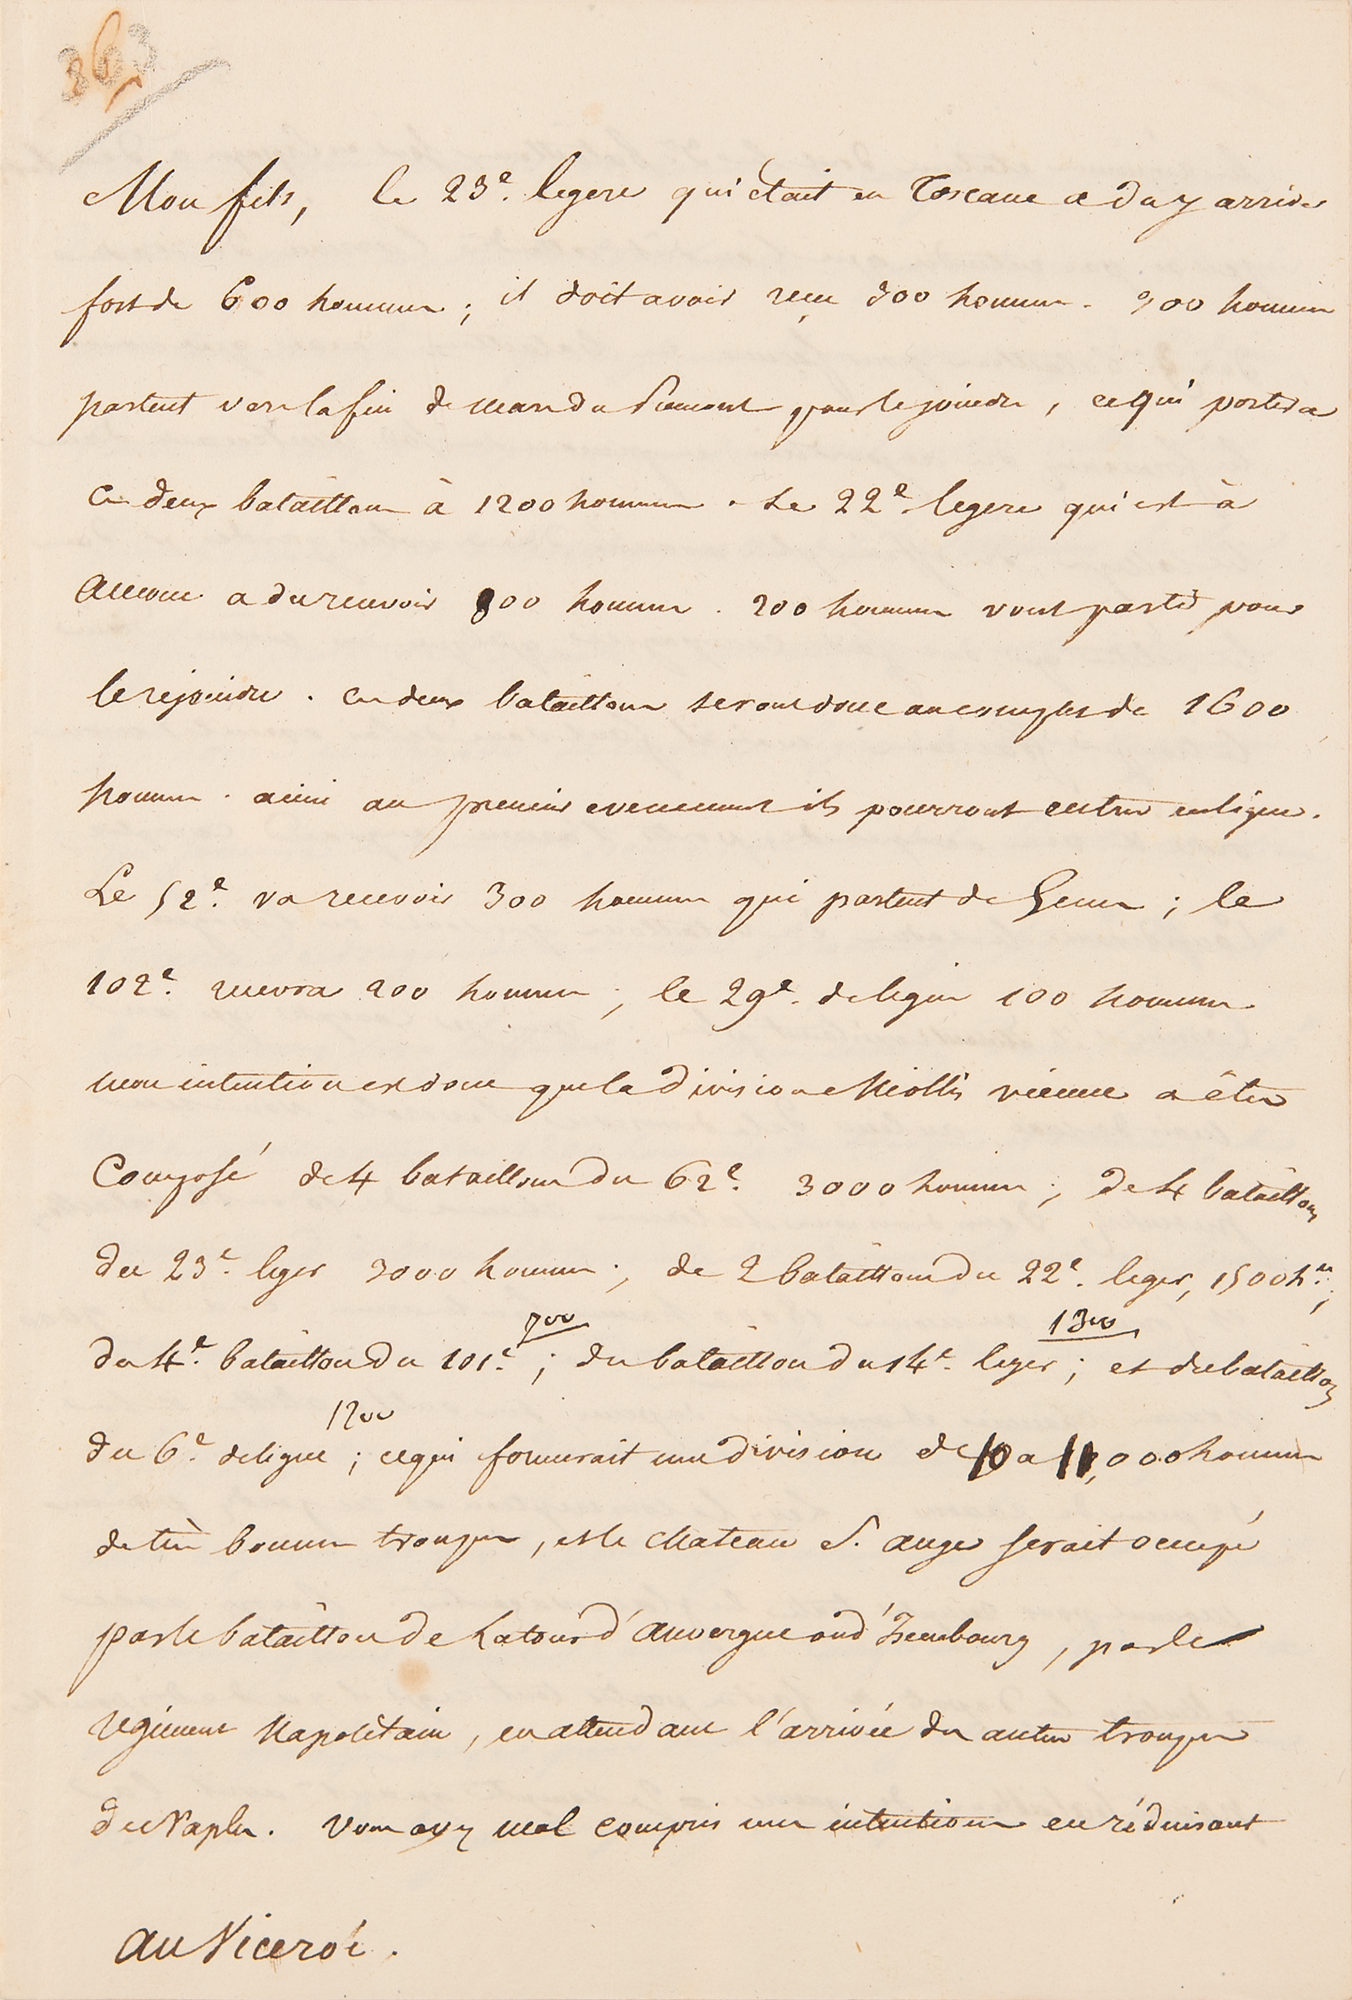 363
Mon fils, le 23e. legere qui était en Toscane a du y arriver
fort de 600 hommes ; il doit avoir reçu 300 hommes. 300 hommes
partent vers la fin de mars du Piemont pour le joindre, ce qui portera
ces deux bataillons à 1200 hommes. Le 22e. legere qui est à
Ancone a du recevoir 800 hommes. 200 hommes vont partir pour
le rejoindre. Ces deux bataillons seront donc au complet de 1600
hommes. ainsi au premier evenement ils pourront entrer en ligne.
Le 52e. va recevoir 300 hommes qui partent de Genes ; le
102e. recevra 200 hommes ; le 29e. de ligne 100 hommes
mon intention est donc que la division Miollis vienne a être
Composé de 4 bataillons du 62e. 3000 hommes ; de 4 bataillons
du 23e. leger 3000 hommes ; de 2 bataillons du 22e. leger, 1500 h.es ;
700 1300
du 4e. bataillon du 101e. ; du bataillon du 14e. leger ; et du bataillon
1200
du 6e. de ligne ; ce qui formerait une division de 10 a 11,000 hommes
de très bonnes troupes, et le chateau S. ange serait occupé
par le bataillon de Latour d'Auvergne ou d'Isembourg, par le
regiment Napolitain, en attendant l'arrivée des autres troupes
de Naples. Vous avez mal compris mes intentions en réduisant
au Viceroi.